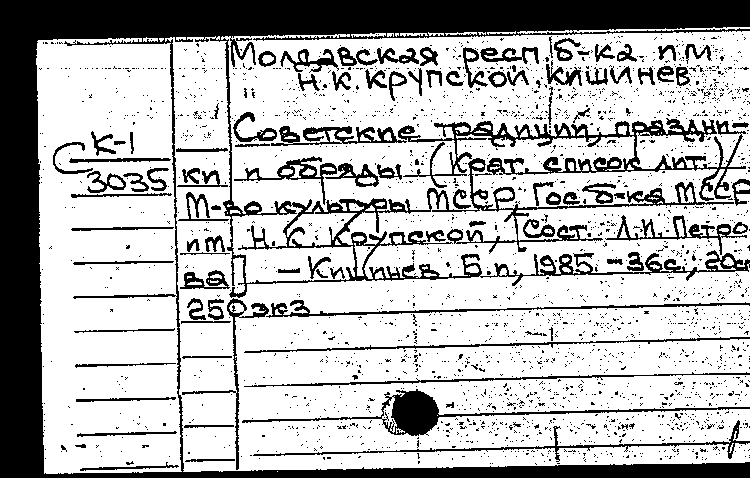 Молдавская респ. б-ка им.
Н.К.Крупской. Кишинев.
Советские традиции, праздни-
К-1
3035
ки и обряды: (Крат. список лит.) /
М-во культуры МССР, Гос. б-ка МССР
им. Н.К. Крупской; [Сост. Л.И. Петро
ва]. — Кишинев: Б.и., 1985. — 36с.; 20см
250 экз.